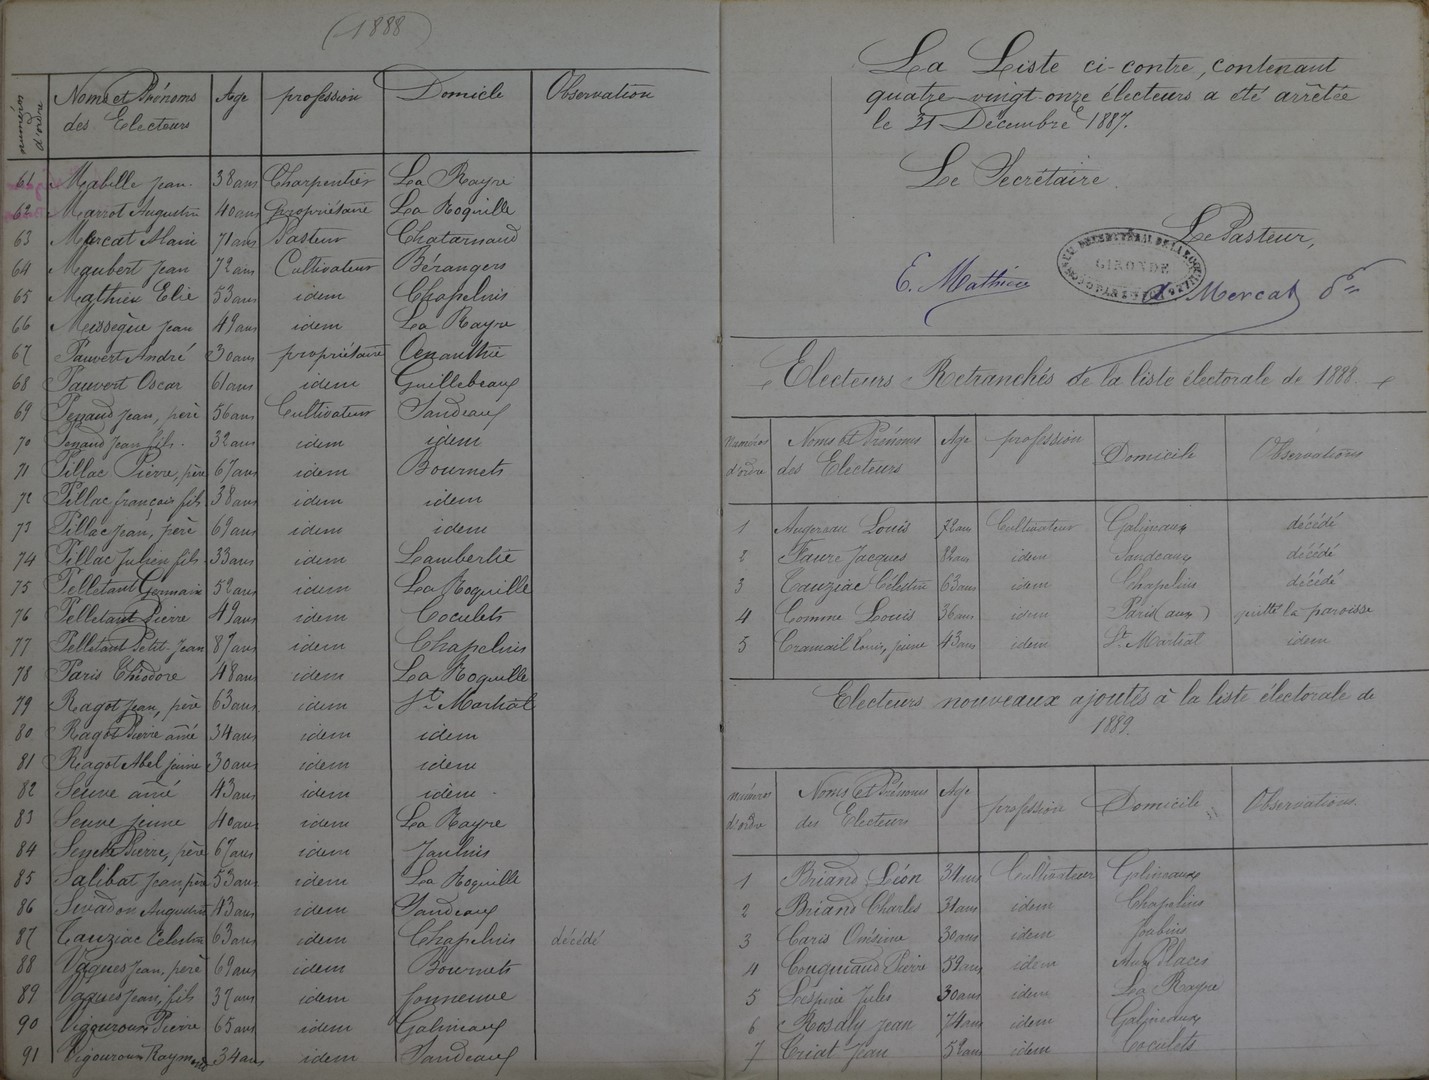 (1888)
numéros d'ordre Noms et Prénoms des Electeurs Age profession Domicile Observation
61 Mabille Jean 38 ans Charpentier La Rayre
62 Marrot Augustin 40 ans propriétaire La Roquille
63 Mercat Alain 71 ans Pasteur Chatarnaud
64 Maubert Jean 72 ans Cultivateur Bérangers
65 Mathieu Elie 53 ans idem Chapelins
66 Mussèque Jean 49 ans idem La Rayre
67 Pauvert André 30 ans propriétaire
68 Pauvert Oscar 61 ans idem Guillebeaux
69 Penaud Jean, père 56 ans Cultivateur Sandeaux
70 Penaud Jean fils 32 ans idem idem
71 Pillac Pierre, père 67 ans idem Bournets
72 Pillac françois fils 38 ans idem idem
73 Pillac Jean, père 69 ans idem idem
74 Pillac Julien fils 33 ans idem Lambertie
75 Pelletant Germain 52 ans idem La Roquille
76 Pelletant Pierre 49 ans idem Coculets
77 Pelletant Petit Jean 87 ans idem Chapelins
78 Paris Théodore 48 ans idem La Roquille
79 Ragot Jean, père 63 ans idem St Martial
80 Ragot Pierre ainé 34 ans idem idem
81 Ragot Abel jeune 30 ans idem idem
82 Seuve ainé 43 ans idem idem
83 Seuve jeune 40 ans idem La Rayre
84 Pierre, père 67 ans idem
85 Salibat Jean, père 53 ans idem La Roquille
86 Augustin 43 ans idem Sandeaux
87 Cauziac Célestin 63 ans idem Chapelins décédé
88 Vaques Jean, père 69 ans idem Bournets
89 Vaques Jean, fils 37 ans idem Fonneuve
90 Vigouroux Pierre 65 ans idem Galineaux
91 Vigouroux Raymond 34 ans idem Sandeaux
La Liste ci-contre, contenant
quatre-vingt-onze électeurs a été arrêtée
le 31 Décembre 1887.
Le Secrétaire.
Le Pasteur,
GIRONDE
E. Mathieu
Mercat
Electeurs Retranchés de la liste électorale de 1888.
Numéros d'ordre Noms et Prénoms des Electeurs Age profession Domicile Observations
1 Augereau Louis 72 ans Cultivateur Galineaux décédé
2 Faure Jacques 82 ans idem Sandeaux décédé
3 Cauziac Célestin 63 ans idem Chapelins décédé
4 Comme Louis 36 ans idem Paris (aux) quitté la paroisse
5 Cramail Louis, jeune 43 ans idem St Martial idem
Electeurs nouveaux ajoutés à la liste électorale de
1889.
Numéros d'ordre Noms et Prénoms des Electeurs Age profession Domicile Observations
1 Briand Léon 31 ans Cultivateur Galineaux
2 Briand Charles 31 ans idem Chapelins
3 Caris Onésime 30 ans idem
4 Pierre 59 ans idem Aux Places
5 Lespine Jules 30 ans idem La Rayre
6 Rosaly Jean 74 ans idem Galineaux
7 Criat Jean 52 ans idem Coculets